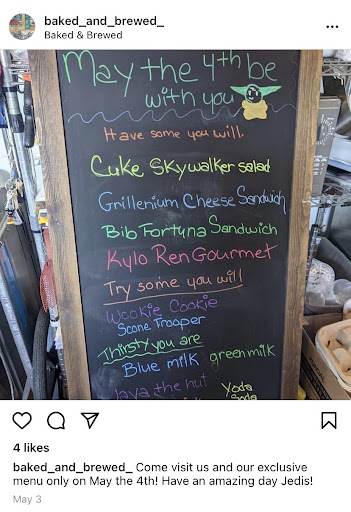 baked_and_brewed_
Baked & Brewed
May the 4th be
with you
Have some you will.
Cuke Skywalker salad
Grillenium Cheese Sandwich
Bib Fortuna Sandwich
Kylo Ren Gourmet
Try some you will
Wookie Cookie
Scone Trooper
Thirsty you are
Blue milk green milk
Java the hut
Yoda
Soda
4 likes
baked_and_brewed_ Come visit us and our exclusive
menu only on May the 4th! Have an amazing day Jedis!
May 3